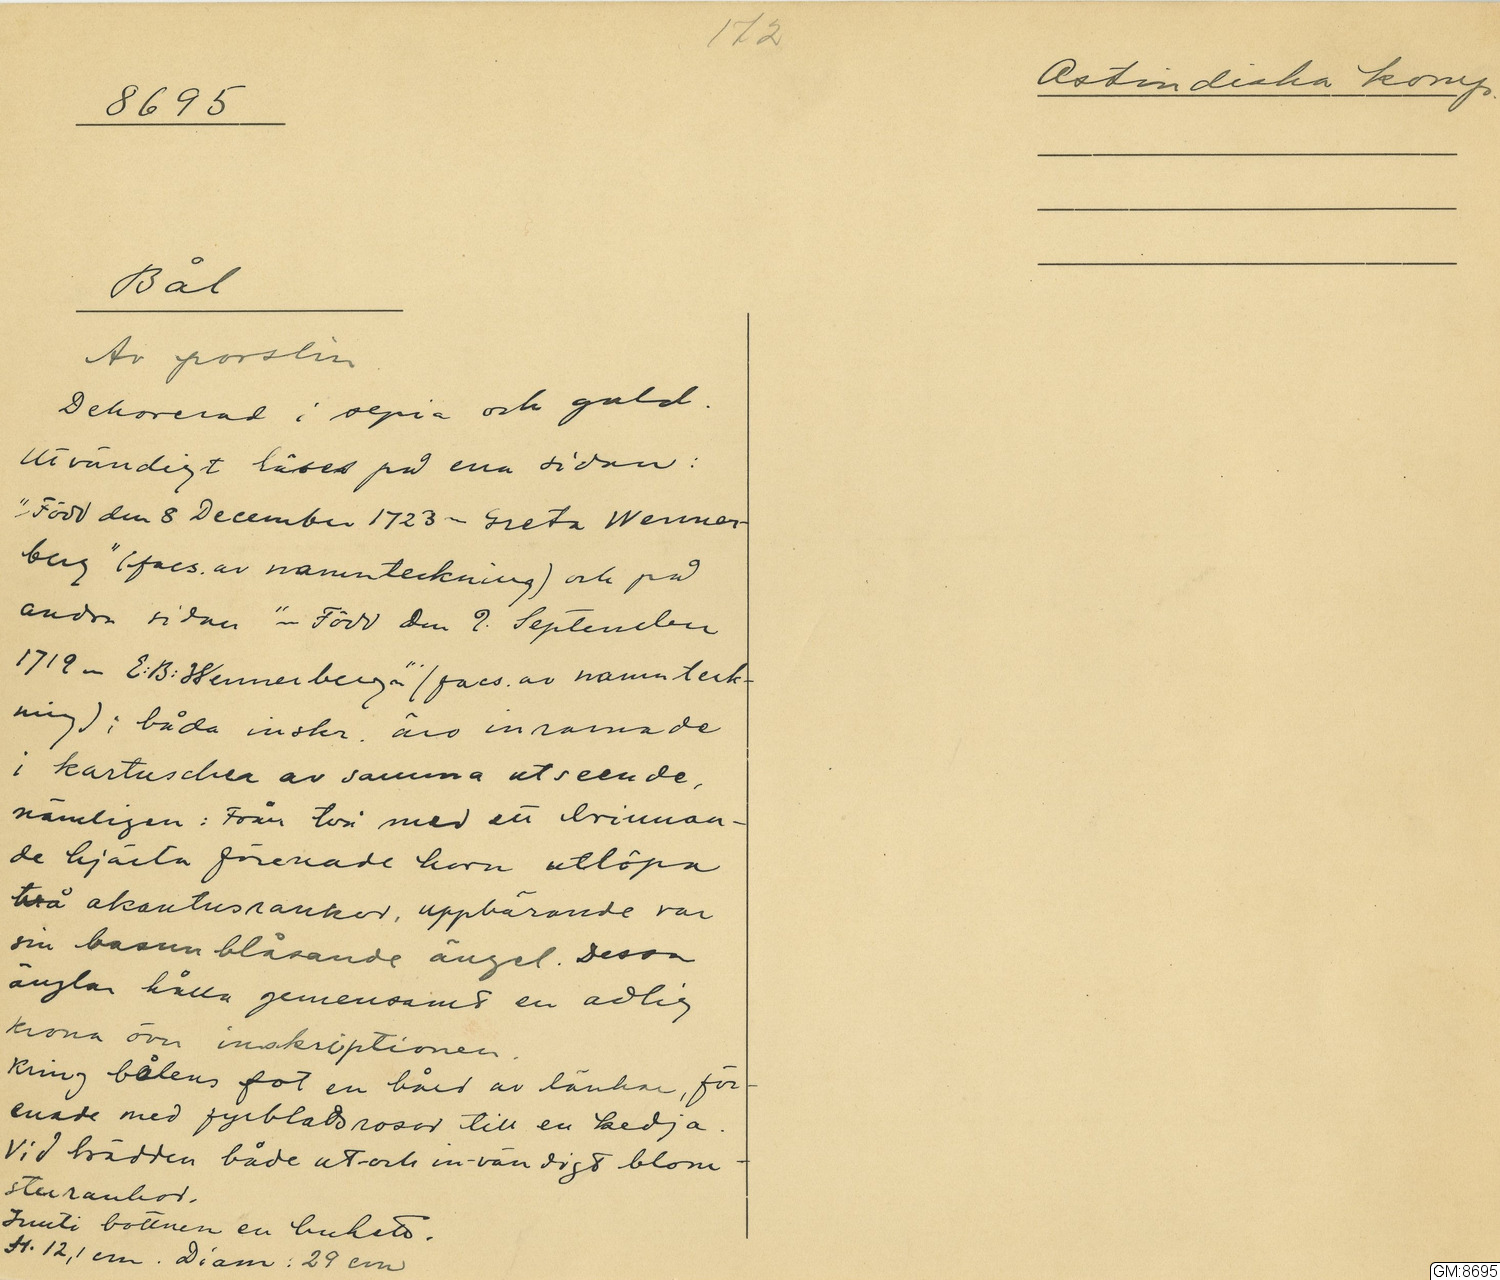 172
8695
Ostindiska komp.
Bål
Av porslin
Dekorerad i sepia och guld.
Utvändigt läses på ena sidan:
"Född den 8 December 1723 – Greta Wenner-
berg" (facs. av namnteckning) och på
andra sidan "– Född den 9. September
1719 – E:B: Wennerberg –" (facs. av namnteck-
ning); båda inskr. äro inramade
i kartuscher av samma utseende,
nämligen: Från två med ett brinnan-
de hjärta förenade horn utlöpa
två akantusrankor, uppbärande var
sin basunblåsande ängel. Dessa
änglar hålla gemensamt en adlig
krona över inskriptionen.
Kring bålens fot en bård av länkar, för-
enade med fyrbladsrosor till en kedja.
Vid brädden både ut- och in-vändigt blom-
sterrankor.
Inuti bottnen en bukett.
H. 12,1 cm. Diam: 29 cm
GM:8695